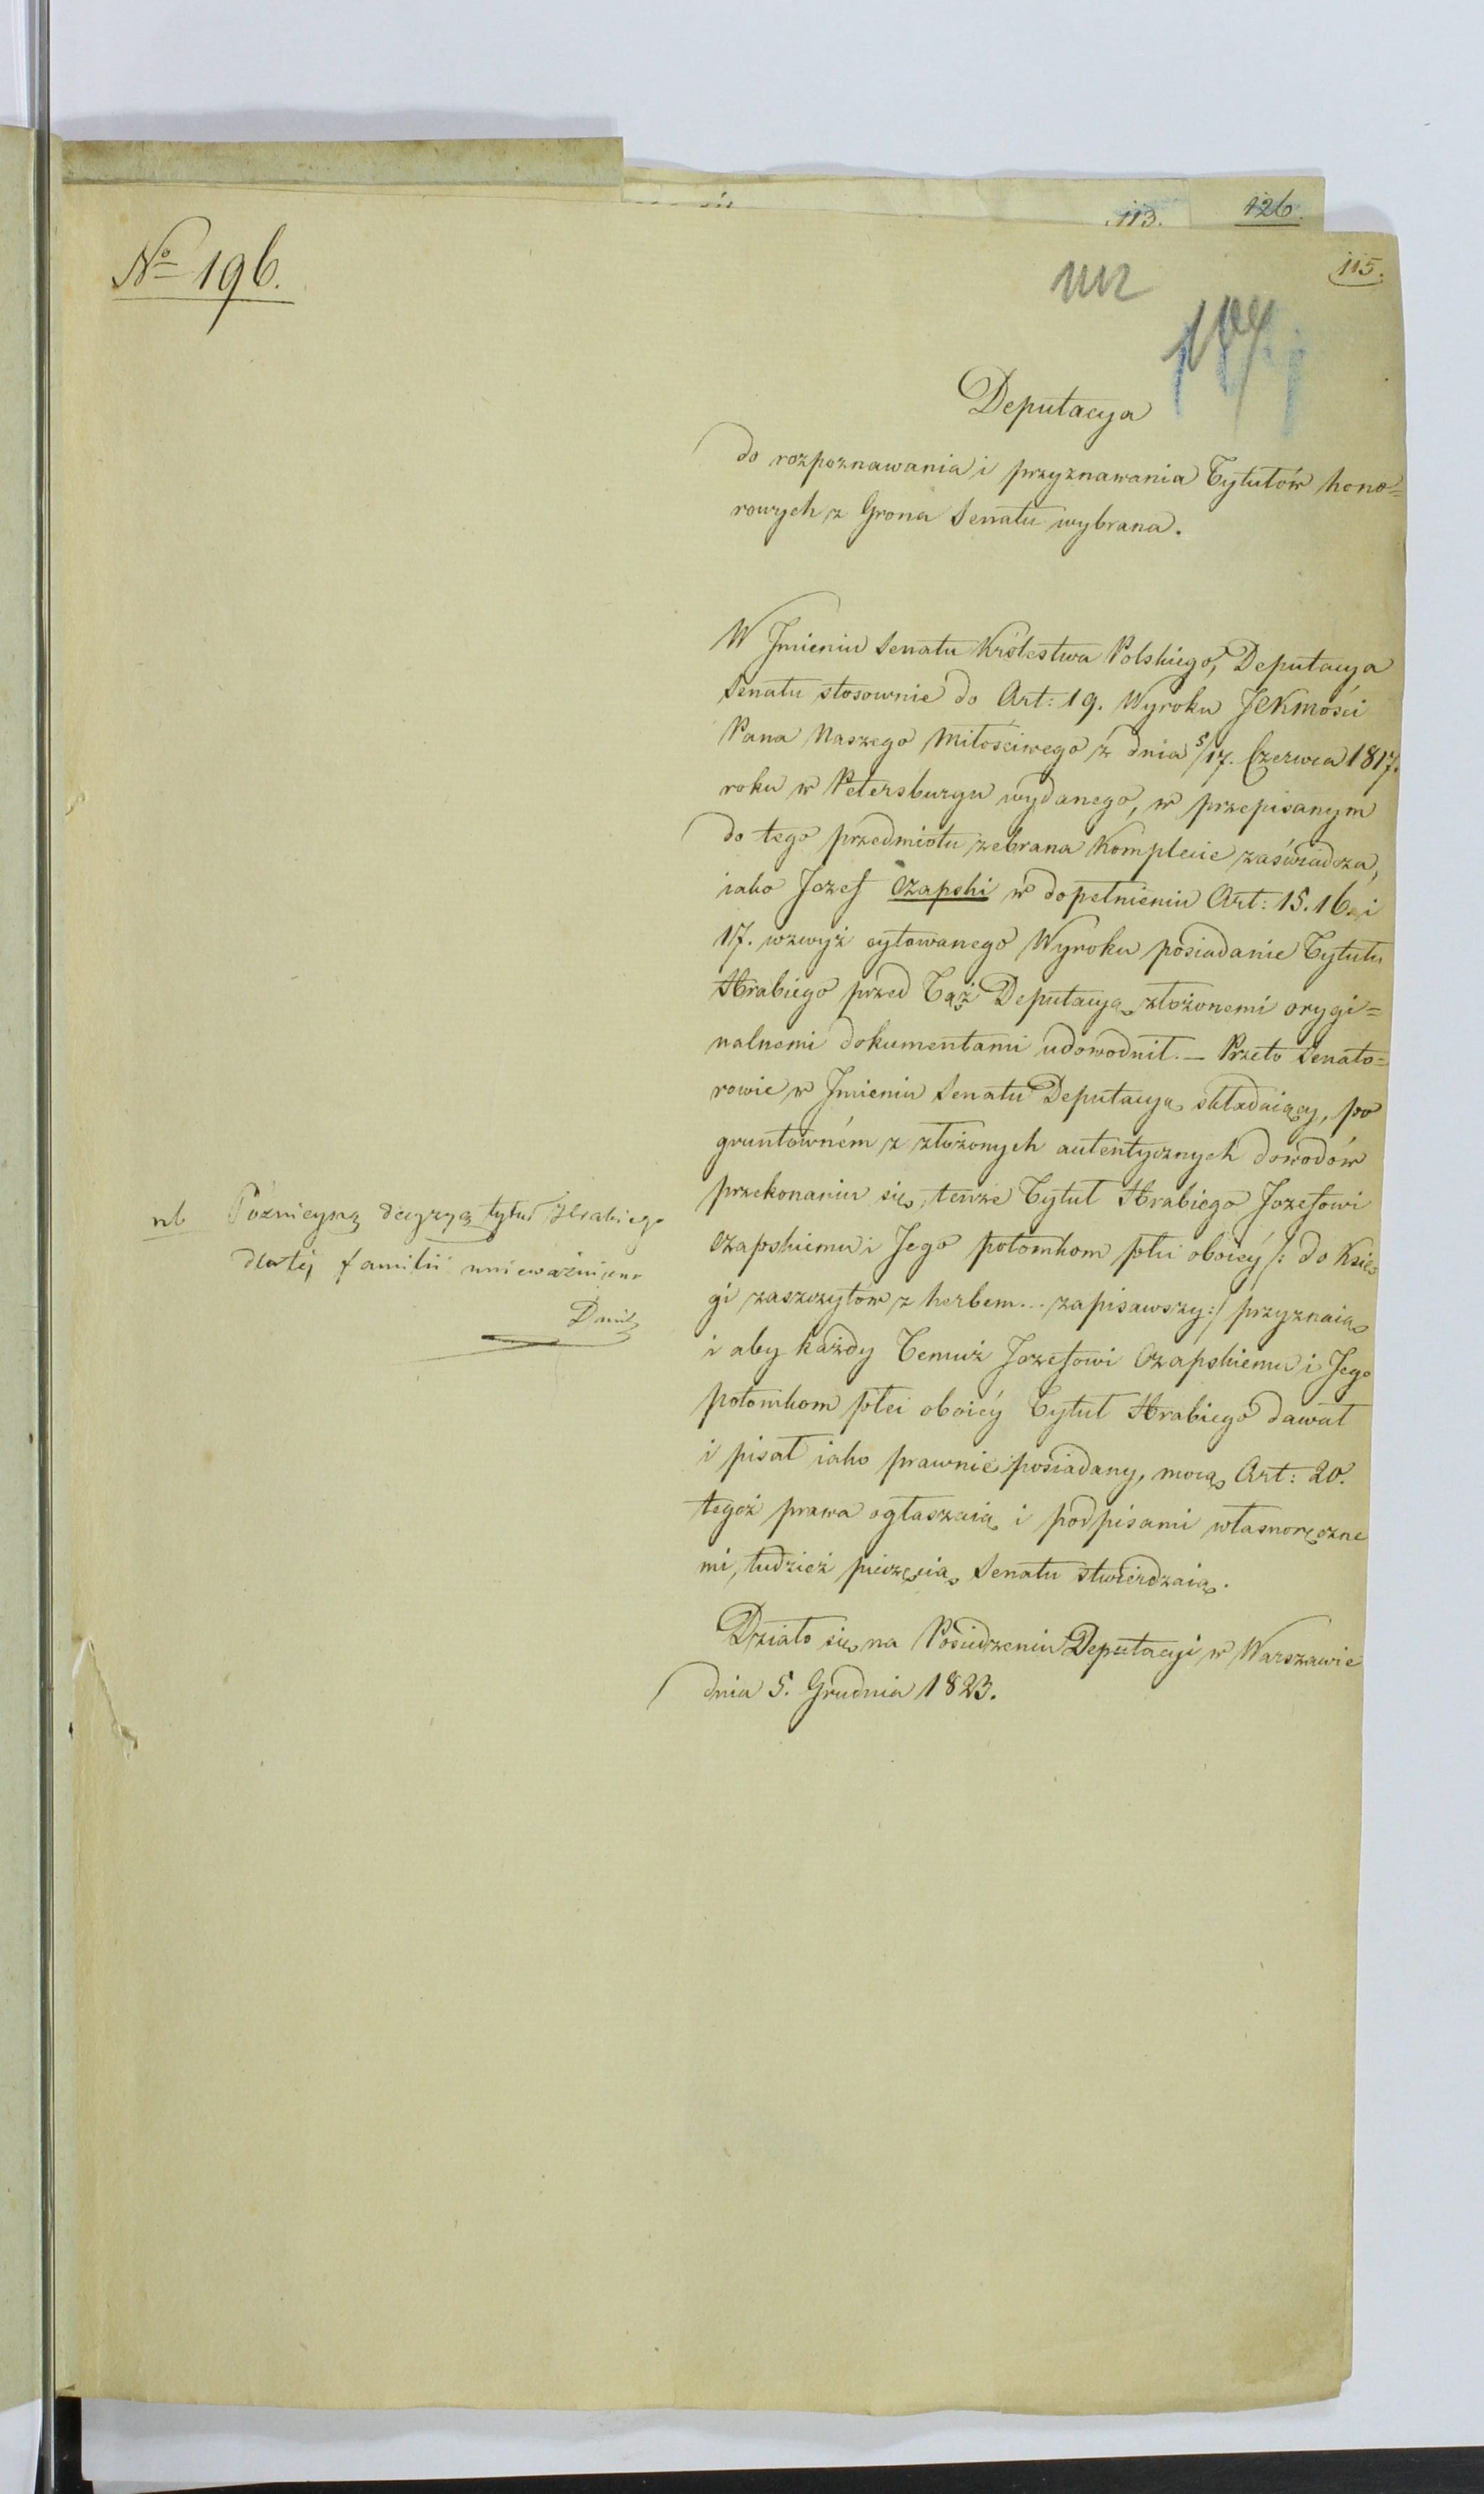 113.
126.
No 196.
115.
Deputacya
do rozpoznawania i przyznawania Tytułów hono=
rowych z Grona Senatu wybrana.
W Jmieniu Senatu Królestwa Polskiego, Deputacya
Senatu stosownie do Art: 19. Wyroku JCKMości
Pana Naszego Miłościwego z dnia 5/17. Czerwca 1817.
roku w Petersburgu wydanego, w przepisanym
do tego przedmiotu zebrana Komplecie zaświadcza,
iako Jozef Czapski w dopełnieniu Art: 15. 16. i
17. wzwyż cytowanego Wyroku posiadanie Tytułu
Hrabiego przed Tąż Deputacyą złożonemi orygi=
nalnemi dokumentami udowodnił. — Przeto Senato=
rowie w Jmieniu Senatu Deputacyą składaiący, po
gruntowném z złożonych autentycznych dowodów
przekonaniu się, tenże Tytuł Hrabiego Jozefowi
Czapskiemu i Jego potomkom płci oboiéy /: do Księ
gi zaszczytów z herbem... zapisawszy :/ przyznaią
i aby każdy Temuż Jozefowi Czapskiemu i Jego
potomkom płci oboiéy Tytuł Hrabiego dawał
i pisał iako prawnie posiadany, mocą Art: 20.
tegoż prawa ogłaszaią i podpisami własnoręczne
mi, tudzież pieczęcią Senatu stwierdzaią.
Działo się na Posiedzeniu Deputacyi w Warszawie
dnia 5. Grudnia 1823.
nb Późnieyszą decyzyą tytuł Hrabiego
dla téj familii unieważniono